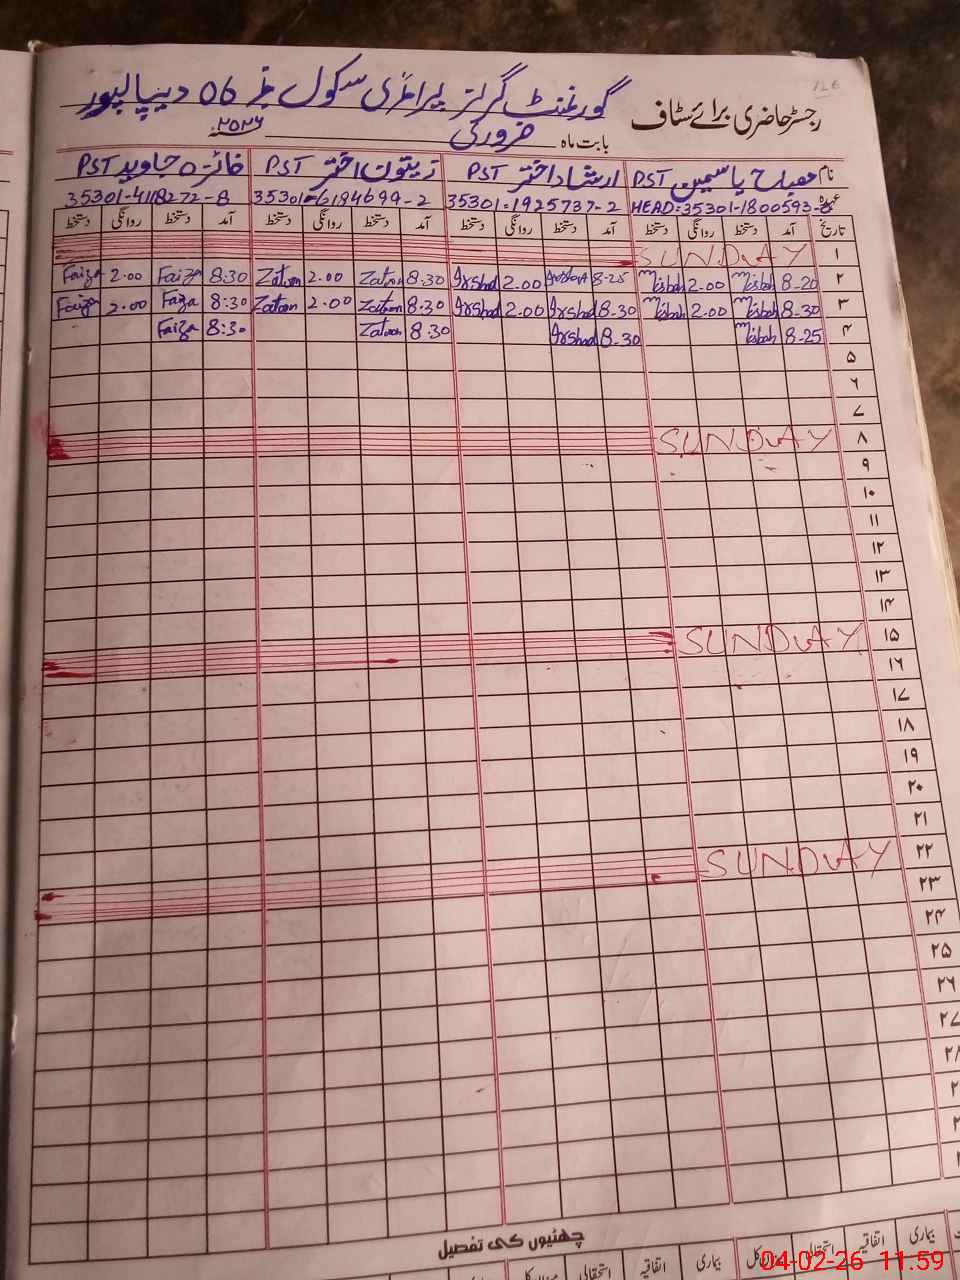 126
رجسٹر حاضری برائے سٹاف گورنمنٹ گرلز پرائمری سکول نمبر 06 دیپالپور
بابت ماہ فروری ۲۰۲۶
نام مصباح یاسمین PST ارشاد اختر PST زیتون اختر PST فائزہ جاوید PST
عہدہ HEAD:35301-1800593-8 35301-1925737-2 35301-6194699-2 35301-4118272-8
تاریخ آمد دستخط روانگی دستخط آمد دستخط روانگی دستخط آمد دستخط روانگی دستخط آمد دستخط روانگی دستخط
۱ SUNDAY
۲ 8-20 Misbah 2.00 Misbah 8-25 Irshad 2.00 Irshad 8.30 Zatoon 2.00 Zatoon 8:30 Faiza 2.00 Faiza
۳ 8-30 Misbah 2.00 Misbah 8.30 Irshad 2.00 Irshad 8.30 Zatoon 2.00 Zatoon 8:30 Faiza 2.00 Faiza
۴ 8-25 Misbah 8-30 Irshad 8.30 Zatoon 8:30 Faiza
۵
۶
۷
۸ SUNDAY
۹
۱۰
۱۱
۱۲
۱۳
۱۴
۱۵ SUNDAY
۱۶
۱۷
۱۸
۱۹
۲۰
۲۱
۲۲ SUNDAY
۲۳
۲۴
۲۵
۲۶
۲۷
۲۸
چھٹیوں کی تفصیل
بیماری اتفاقیہ استحقاقی بیماری اتفاقیہ استحقاقی
04-02-26 11:59